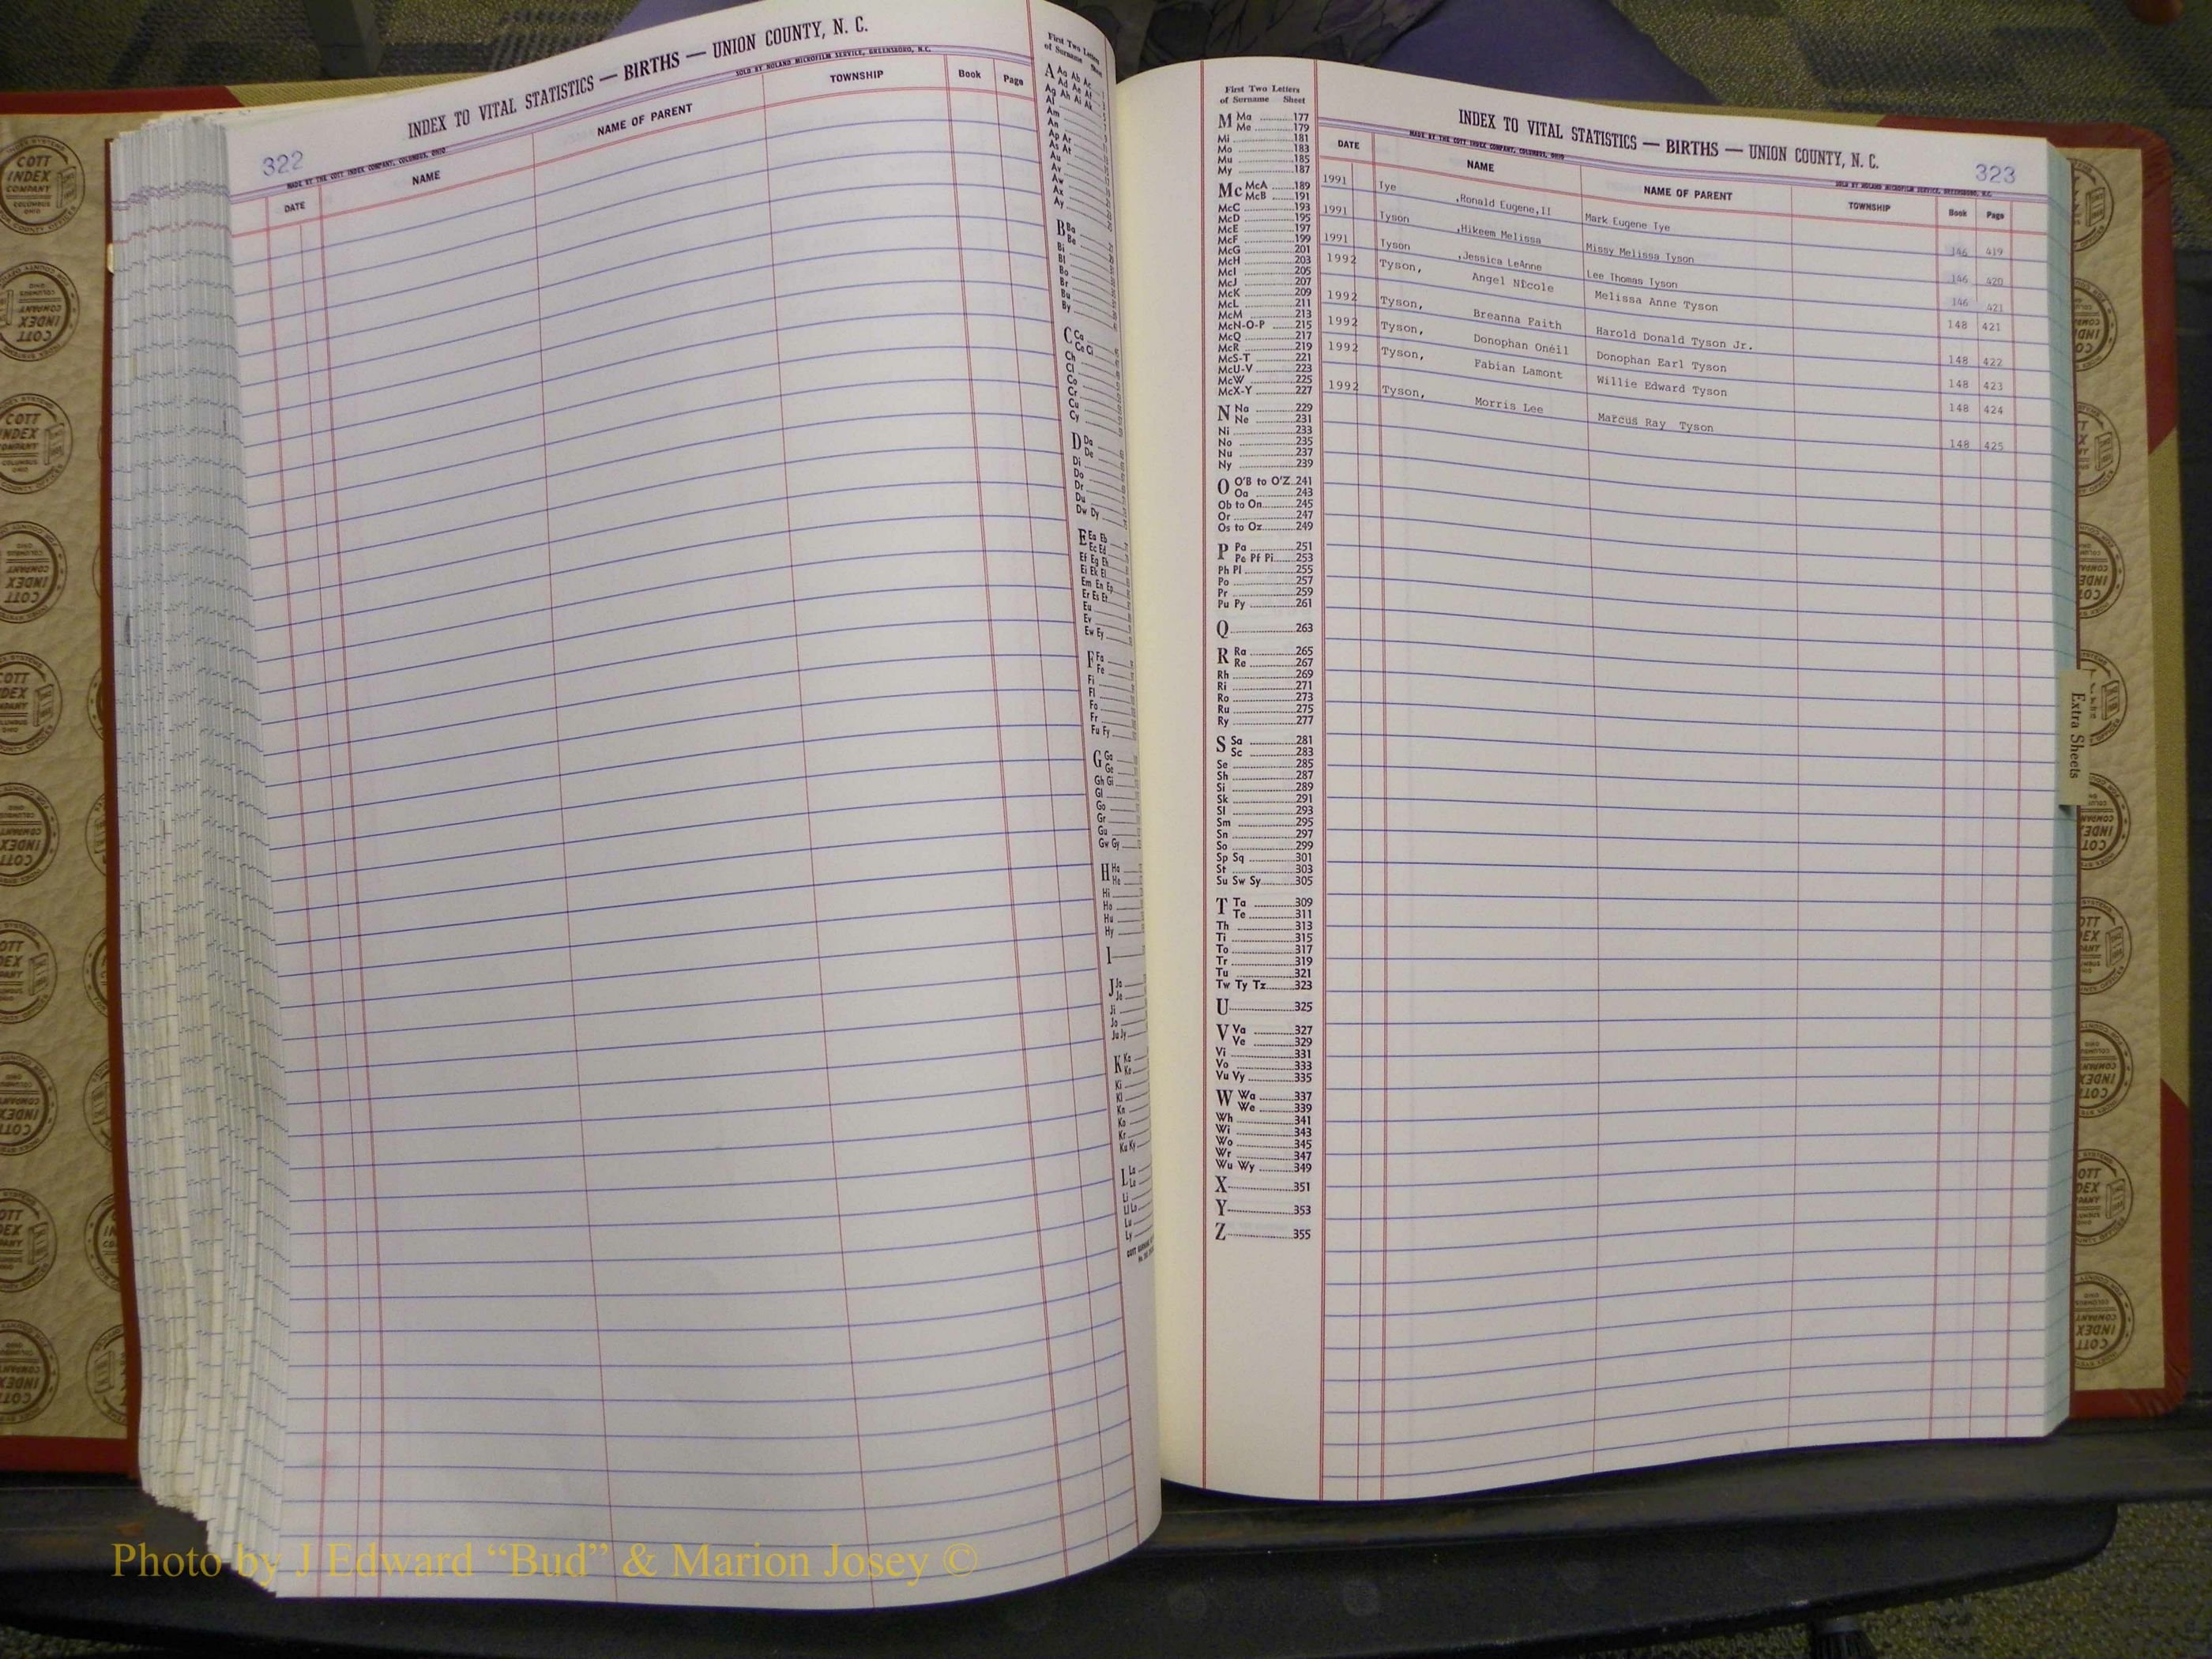 INDEX TO VITAL STATISTICS — BIRTHS — UNION COUNTY, N. C.
322
MADE BY THE COTT INDEX COMPANY, COLUMBUS, OHIO
SOLD BY NOLAND MICROFILM SERVICE, GREENSBORO, N.C.
DATE NAME NAME OF PARENT TOWNSHIP Book Page
First Two Letters
of Surname Sheet
A Aa Ab Ac
Ad Ae Af
Ag Ah Ai Ak
Al
Am
An
Ap Ar
As At
Au
Av
Aw
Ax
Ay
B Ba
Be
Bi
Bl
Bo
Br
Bu
By
C Ca
Ce Ci
Ch
Cl
Co
Cr
Cu
Cy
D Da
De
Di
Do
Dr
Du
Dw Dy
E Ea Eb
Ec Ed
Ef Eg Eh
Ei Ek El
Em En Ep
Er Es Et
Eu
Ev
Ew Ey
F Fa
Fe
Fi
Fl
Fo
Fr
Fu Fy
G Ga
Ge
Gh Gi
Gl
Go
Gr
Gu
Gw Gy
H Ha
He
Hi
Ho
Hu
Hy
I
J Ja
Je
Ji
Jo
Ju Jy
K Ka
Ke
Ki
Kl
Kn
Ko
Kr
Ku Ky
L La
Le
Li
Ll Lo
Lu
Ly
First Two Letters
of Surname Sheet
M Ma 177
Me 179
Mi 181
Mo 183
Mu 185
My 187
Mc McA 189
McB 191
McC 193
McD 195
McE 197
McF 199
McG 201
McH 203
McI 205
McJ 207
McK 209
McL 211
McM 213
McN-O-P 215
McQ 217
McR 219
McS-T 221
McU-V 223
McW 225
McX-Y 227
N Na 229
Ne 231
Ni 233
No 235
Nu 237
Ny 239
O O'B to O'Z 241
Oa 243
Ob to On 245
Or 247
Os to Oz 249
P Pa 251
Pe Pf Pi 253
Ph Pl 255
Po 257
Pr 259
Pu Py 261
Q 263
R Ra 265
Re 267
Rh 269
Ri 271
Ro 273
Ru 275
Ry 277
S Sa 281
Sc 283
Se 285
Sh 287
Si 289
Sk 291
Sl 293
Sm 295
Sn 297
So 299
Sp Sq 301
St 303
Su Sw Sy 305
T Ta 309
Te 311
Th 313
Ti 315
To 317
Tr 319
Tu 321
Tw Ty Tz 323
U 325
V Va 327
Ve 329
Vi 331
Vo 333
Vu Vy 335
W Wa 337
We 339
Wh 341
Wi 343
Wo 345
Wr 347
Wu Wy 349
X 351
Y 353
Z 355
INDEX TO VITAL STATISTICS — BIRTHS — UNION COUNTY, N. C.
323
MADE BY THE COTT INDEX COMPANY, COLUMBUS, OHIO
SOLD BY NOLAND MICROFILM SERVICE, GREENSBORO, N.C.
DATE NAME NAME OF PARENT TOWNSHIP Book Page
1991 Tye ,Ronald Eugene,II Mark Eugene Tye 146 419
1991 Tyson ,Hikeem Melissa Missy Melissa Tyson 146 420
1991 Tyson ,Jessica LeAnne Lee Thomas Tyson 146 421
1992 Tyson, Angel Nicole Melissa Anne Tyson 148 421
1992 Tyson, Breanna Faith Harold Donald Tyson Jr. 148 422
1992 Tyson, Donophan Oneil Donophan Earl Tyson 148 423
1992 Tyson, Fabian Lamont Willie Edward Tyson 148 424
1992 Tyson, Morris Lee Marcus Ray Tyson 148 425
Extra Sheets
COTT
INDEX
COMPANY
COLUMBUS
OHIO
Photo by J Edward “Bud” & Marion Josey ©